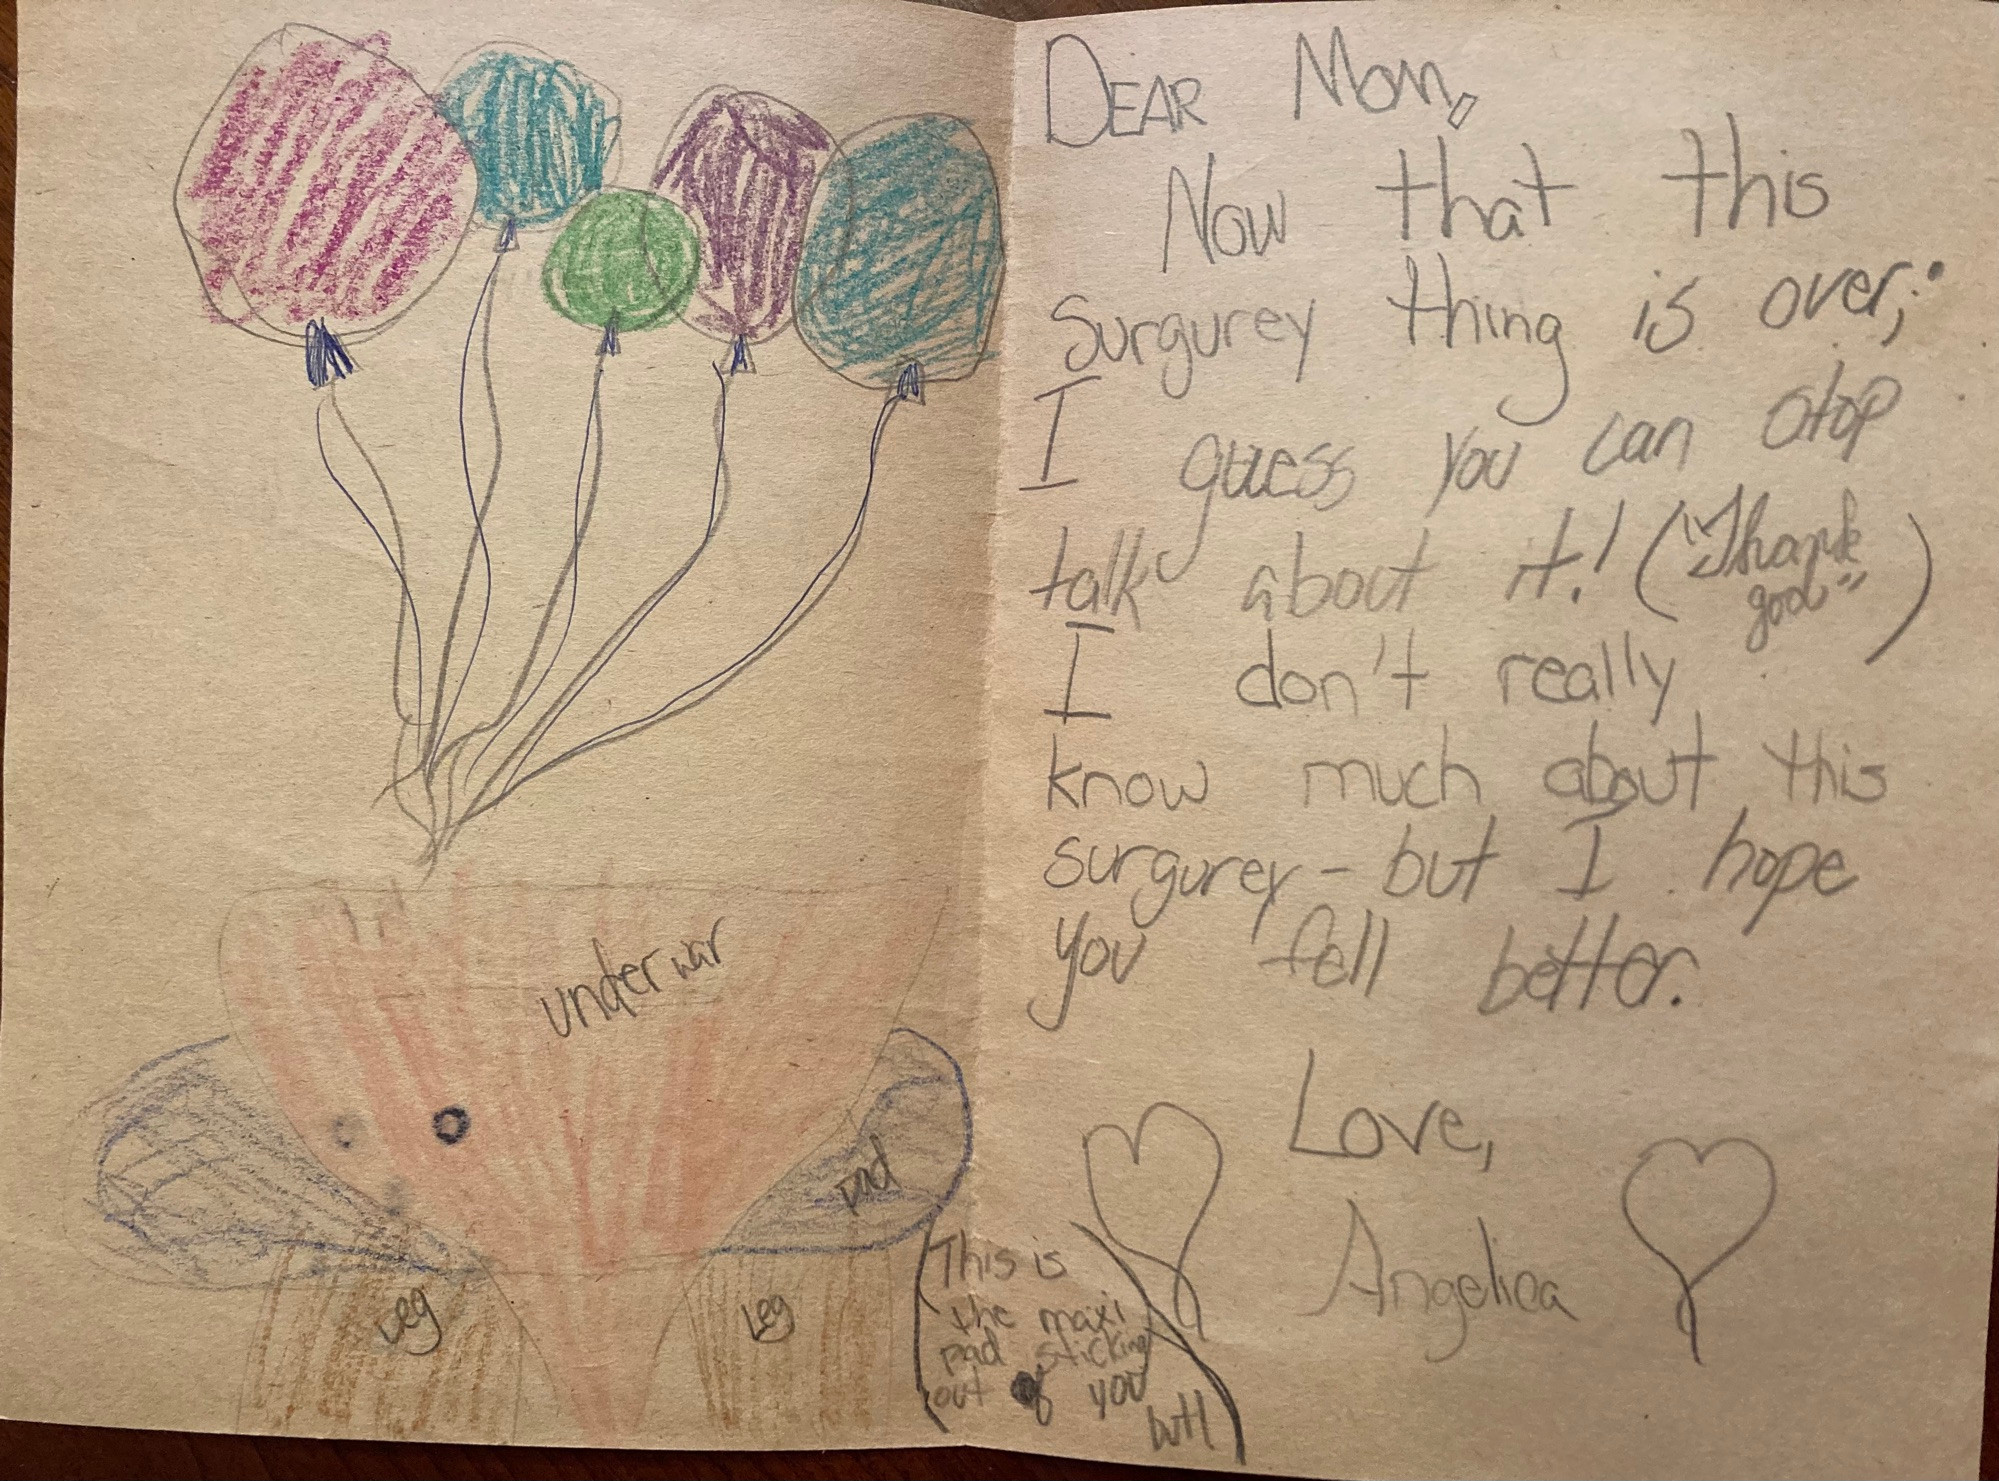 underwar
pad
Leg
Leg
This is
the maxi
pad sticking
out of you
butt
DEAR Mom,
Now that this
surgurey thing is over;
I guess you can stop
talk about it! ("Thank
god")
I don't really
know much about this
surgurey - but I hope
you fell better.
Love,
Angelica